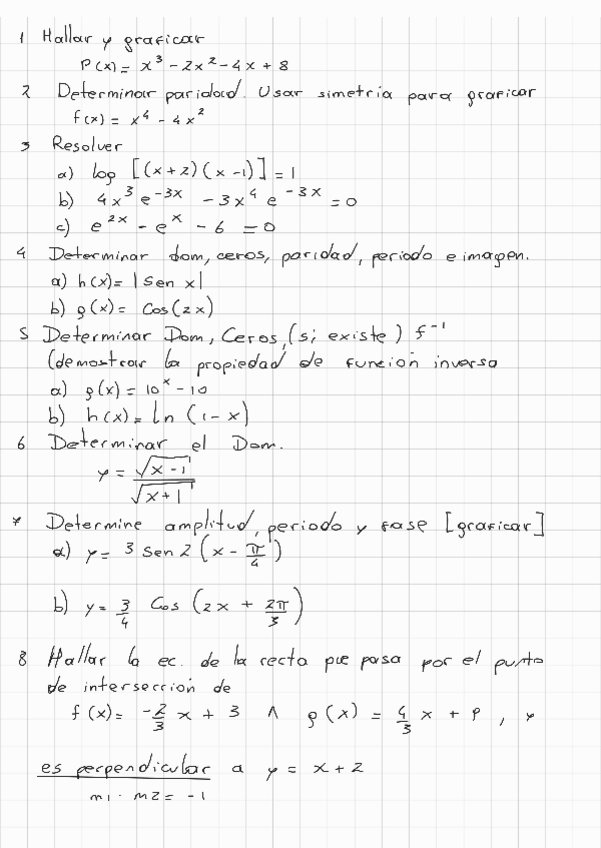 1 Hallar y graficar
P(x) = x³ - 2x² - 4x + 8
2 Determinar paridad. Usar simetria para graficar
f(x) = x⁴ - 4x²
3 Resolver
a) log [(x+2)(x-1)] = 1
b) 4x³ e^-3x - 3x⁴ e^-3x = 0
c) e^2x - e^x - 6 = 0
4 Determinar dom, ceros, paridad, periodo e imagen.
a) h(x) = |sen x|
b) g(x) = Cos(2x)
5 Determinar Dom, Ceros, (si existe) f⁻¹
(demostrar la propiedad de función inversa
a) g(x) = 10^x - 10
b) h(x) = ln (1-x)
6 Determinar el Dom.
y = √(x-1) / √(x+1)
7 Determine amplitud, periodo y fase [graficar]
a) y = 3 sen 2 (x - π/4)
b) y = 3/4 Cos (2x + 2π/3)
8 Hallar la ec. de la recta que pasa por el punto
de intersección de
f(x) = -2/3 x + 3 ∧ g(x) = 4/3 x + 9, y
es perpendicular a y = x + 2
m1 · m2 = -1